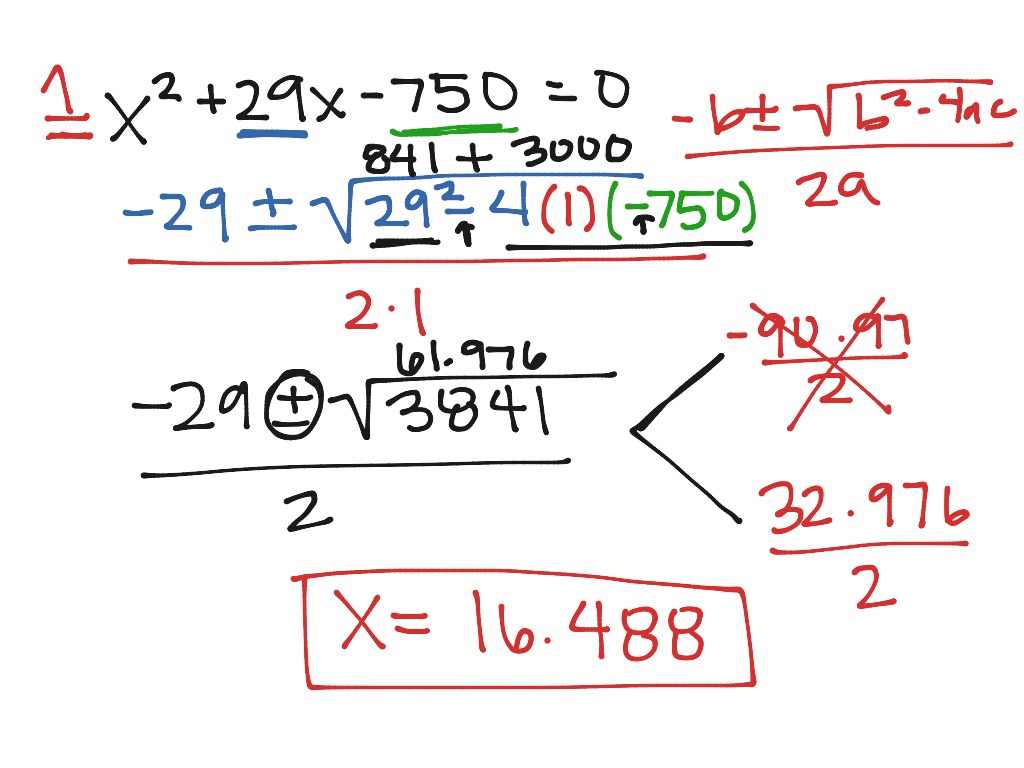 1 x² + 29x - 750 = 0
-b ± √b² - 4ac
2a
841 + 3000
-29 ± √29² - 4(1)(-750)
2 · 1
61.976
-29 ± √3841
2
-90.97
2
32.976
2
x = 16.488